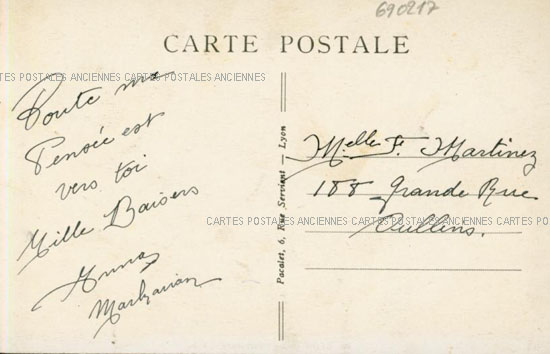 690217
CARTE POSTALE
CARTES POSTALES ANCIENNES CARTES POSTALES ANCIENNES
Toute ma
Pensée est
vers toi
Mille Baisers
Anna
Pacalet, 6, Rue Servient — Lyon
Melle F. Martinez
188 Grande Rue
CARTES POSTALES ANCIENNES CARTES POSTALES ANCIENNES CARTES POSTALES
Oullins.